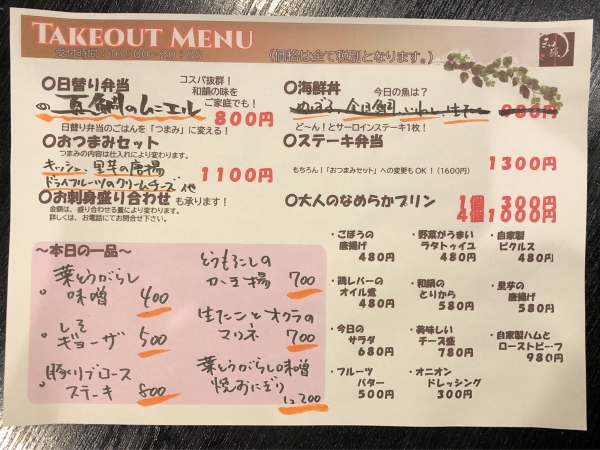 TAKEOUT MENU
受付時間：16：00～20：30
（価格は全て税別となります。）
〇日替り弁当
コスパ抜群！
和韻の味を
ご家庭でも！
真鯛のムニエル
800円
日替り弁当のごはんを「つまみ」に変える！
〇おつまみセット
つまみの内容は仕入れにより変わります。
キッシュ、里芋の唐揚
ドライフルーツのクリームチーズ 他
1100円
〇お刺身盛り合わせも承ります！
金額は、盛り合わせる量により変わります。
詳しくは、お電話にてお問合せ下さい。
〇海鮮丼
今日の魚は？
金目鯛、いわし、生たこ
980円
ど～ん！とサーロインステーキ1枚！
〇ステーキ弁当
1300円
もちろん！「おつまみセット」への変更もOK！（1600円）
〇大人のなめらかプリン
1個 300円
4個1000円
～本日の一品～
葉とうがらし
味噌 400
しそ
ギョーザ 500
豚バラロース
ステーキ 800
とうもろこしの
かき揚 700
生たことオクラの
マリネ 700
葉とうがらし味噌
焼おにぎり
1コ200
・ごぼうの
唐揚げ
480円
・野菜がうまい
ラタトゥイユ
480円
・自家製
ピクルス
480円
・鶏レバーの
オイル煮
480円
・和韻の
とりから
580円
・里芋の
唐揚げ
580円
・今日の
サラダ
680円
・美味しい
チーズ盛
780円
・自家製ハムと
ローストビーフ
980円
・フルーツ
バター
500円
・オニオン
ドレッシング
300円